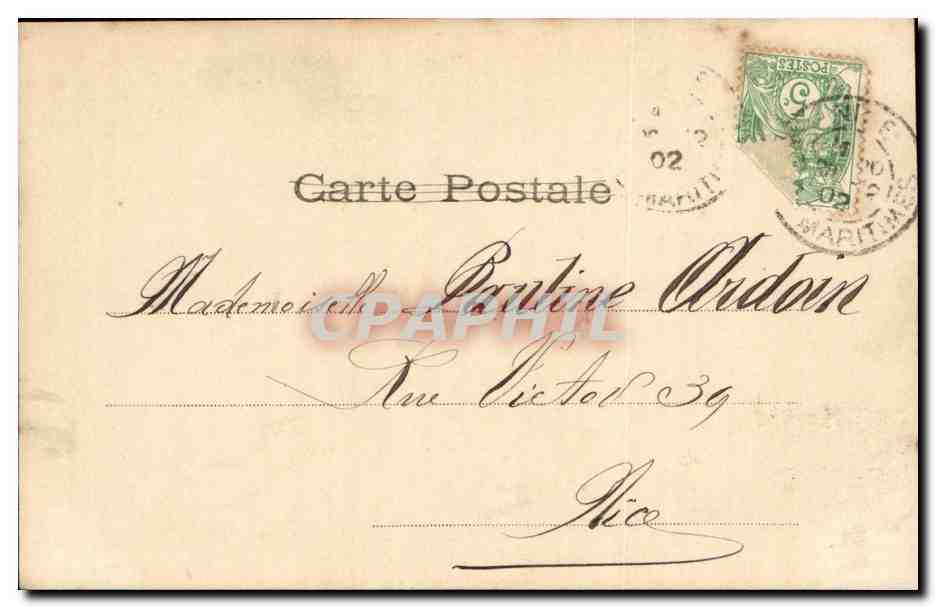 POSTES
5
02
MARITIMES
02
MARITIMES
Carte Postale
Mademoiselle Pauline Ardoin
CPAPHIL
Rue Victor 39
Nice